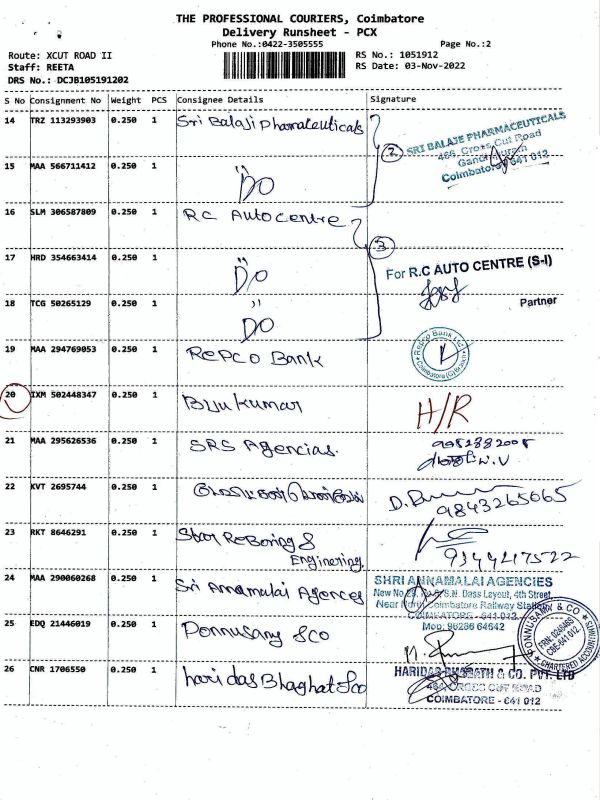 THE PROFESSIONAL COURIERS, Coimbatore
Delivery Runsheet - PCX
Phone No.:0422-3505555
Page No.:2
Route: XCUT ROAD II
RS No.: 1051912
Staff: REETA
RS Date: 03-Nov-2022
DRS No.: DCJB105191202
S No Consignment No Weight PCS Consignee Details Signature
14 TRZ 113293903 0.250 1 Sri Balaji Pharmaceuticals
2
SRI BALAJE PHARMACEUTICALS
466, Cross Cut Road
Gandhipuram
Coimbatore - 641 012
15 MAA 566711412 0.250 1 Do
16 SLM 306587809 0.250 1 RC Autocentre
3
17 HRD 354663414 0.250 1 Do
For R.C AUTO CENTRE (S-I)
Partner
18 TCG 50265129 0.250 1 Do
19 MAA 294769053 0.250 1 REPCO Bank
Repco Bank Ltd
20 IXM 502448347 0.250 1 Biju kumar H/R
21 MAA 295626536 0.250 1 SRS Agencias.
22 KVT 2695744 0.250 1
9843265065
23 RKT 8646291 0.250 1 Star ReBoring &
Enginering.
9344217522
24 MAA 290060268 0.250 1 Sri Annamalai Agences
SHRI ANNAMALAI AGENCIES
S.N. Dass Layout, 4th Street,
Near North Coimbatore Railway Station
COIMBATORE - 641 012
Mob: 96286 64642
25 EDQ 21446019 0.250 1 Ponnusamy &co
PONNUSAMY & CO
CBE-641 012
CHARTERED ACCOUNTANTS
26 CNR 1706550 0.250 1 haridas Bhaghat &co
HARIDAS BHAGATH & CO. PVT. LTD
464, CROSS CUT ROAD
COIMBATORE - 641 012